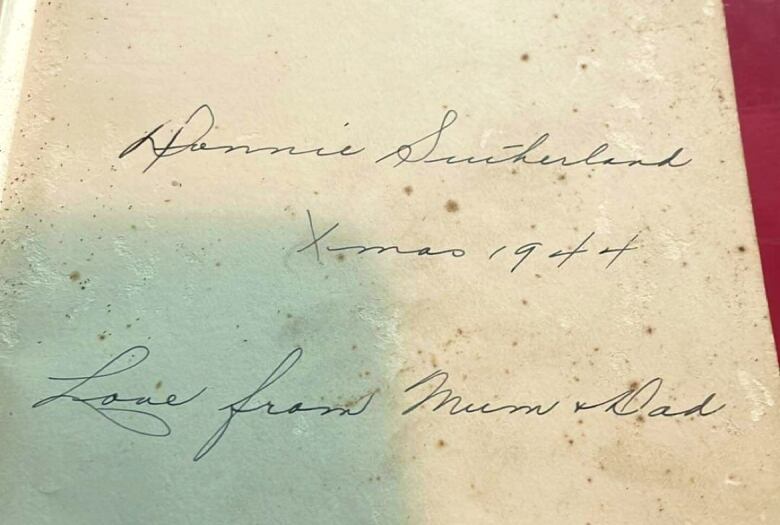 Donnie Sutherland
Xmas 1944
Love from Mum & Dad